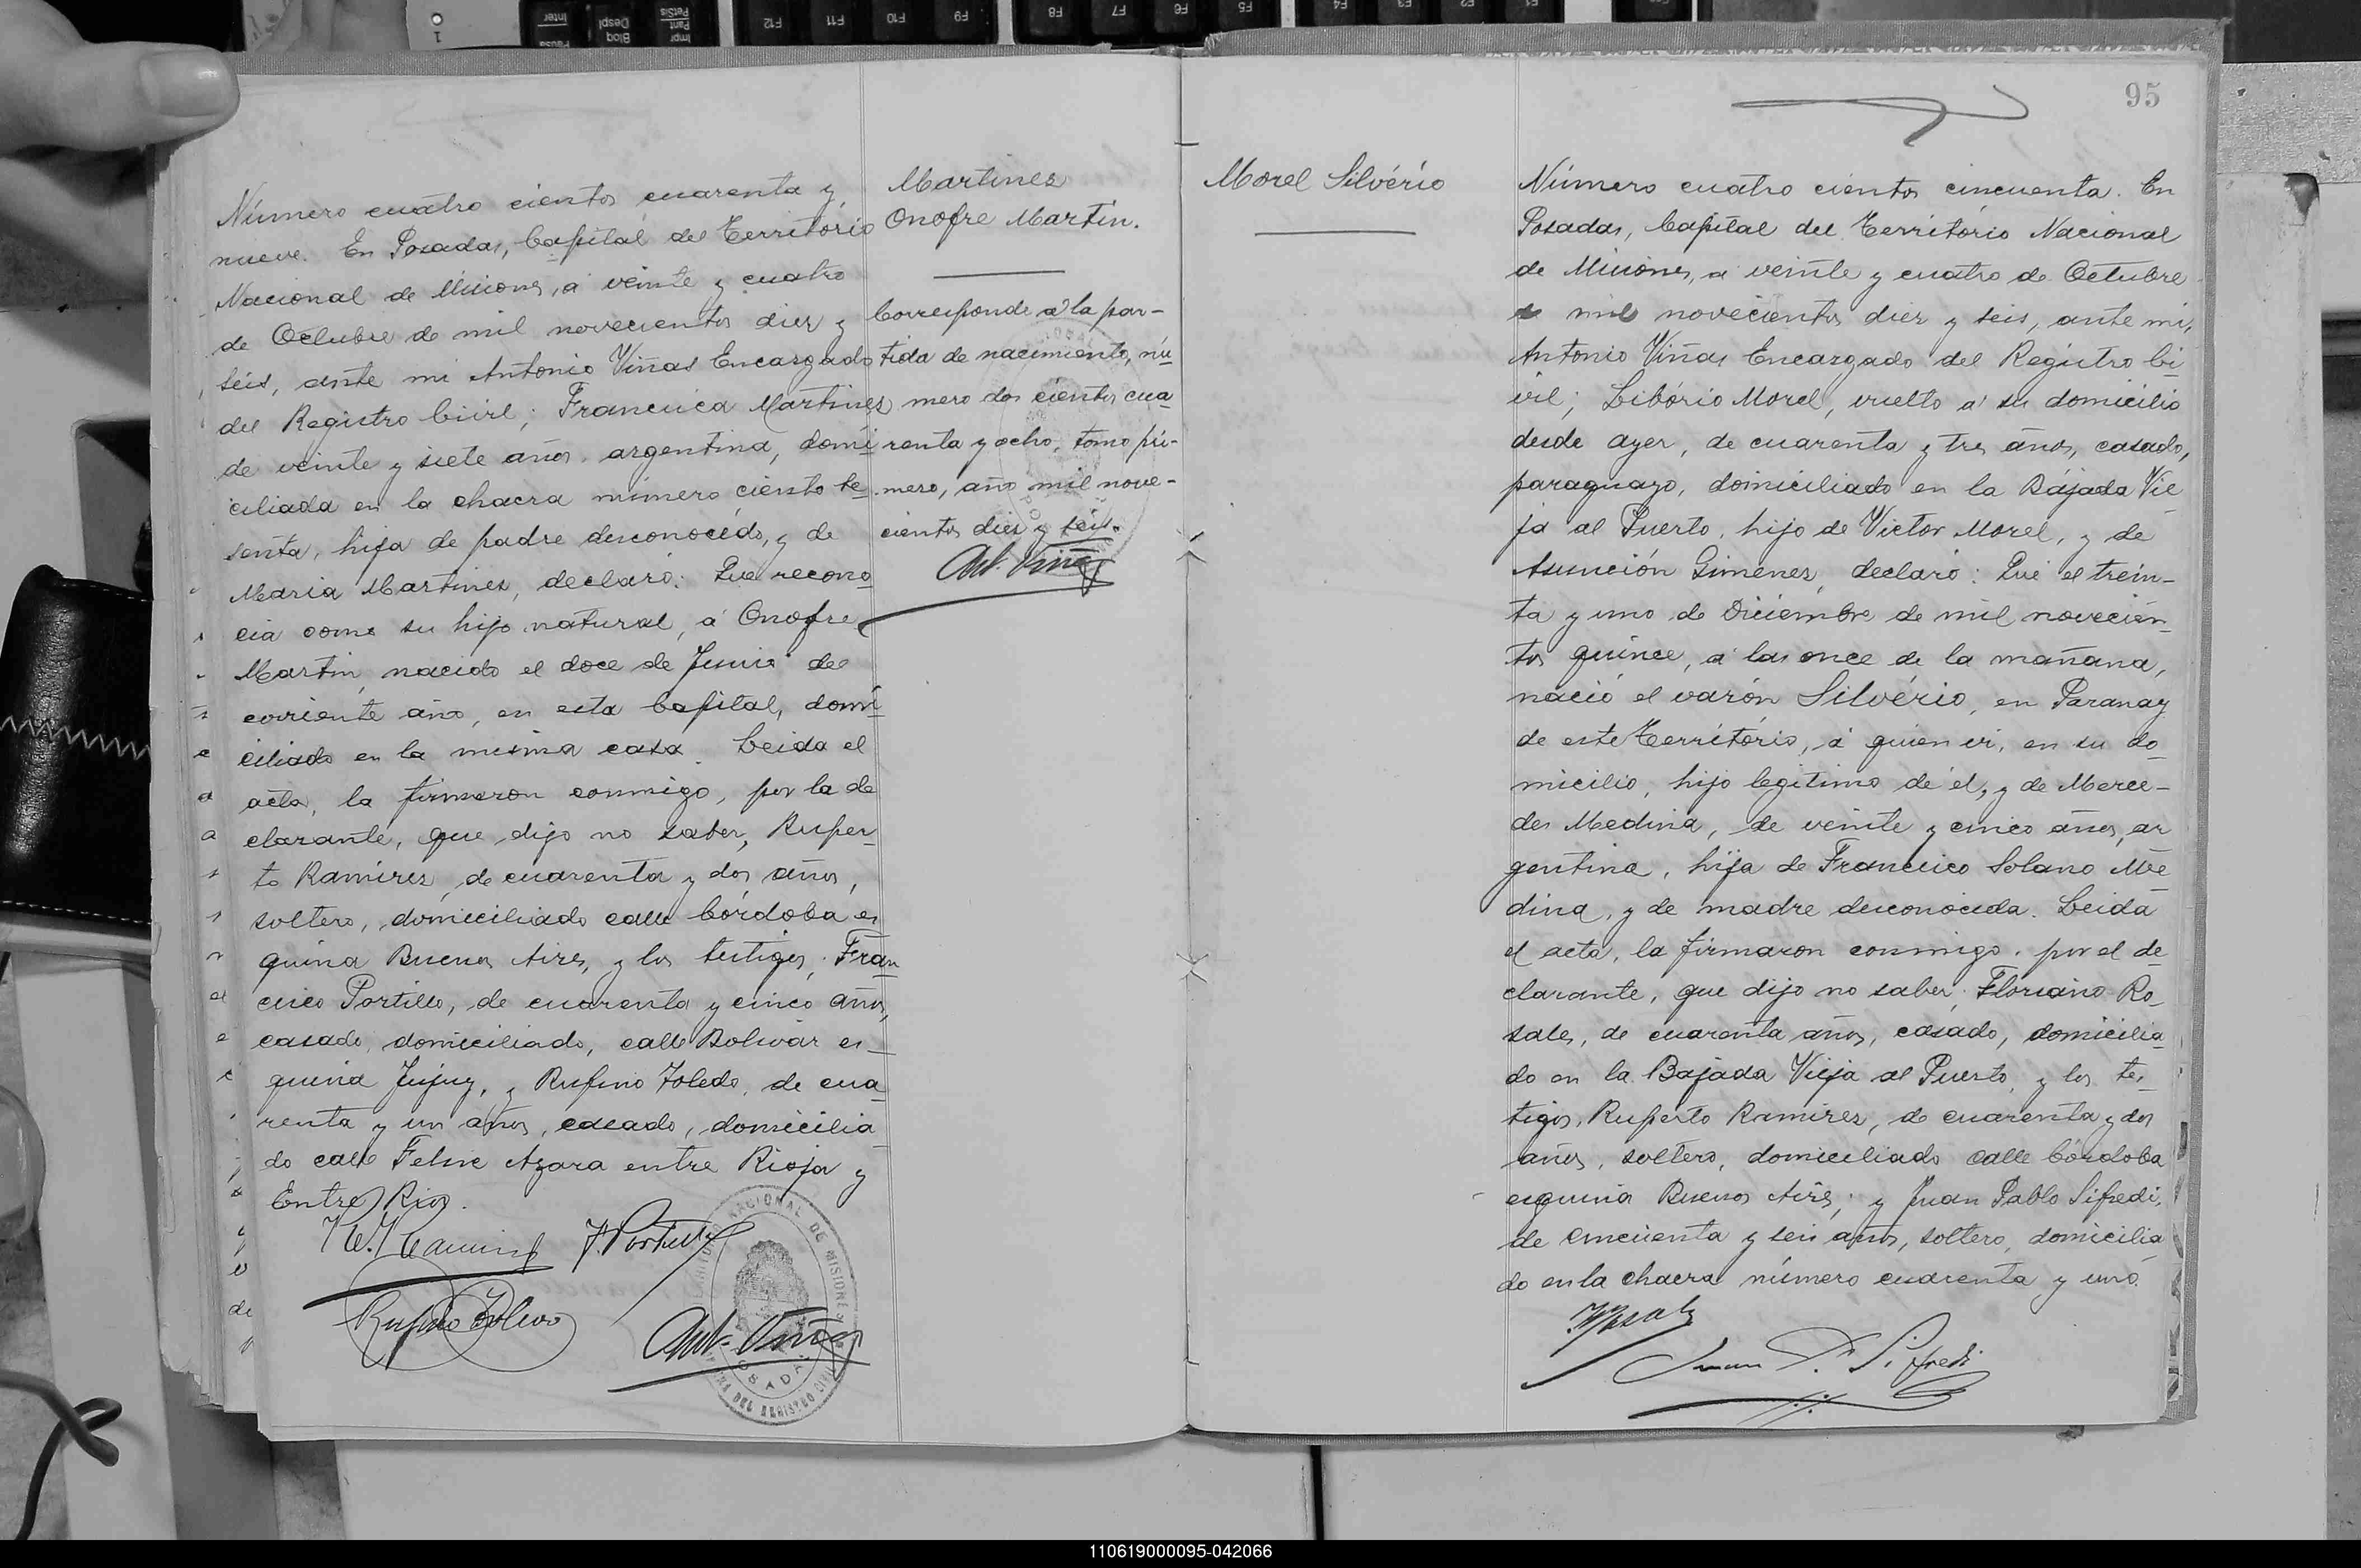 Número cuatro cientos cuarenta y
nueve. En Posadas, Capital del Território
Nacional de Misiones, á veinte y cuatro
de Octubre de mil novecientos diez y
seis, ante mi Antonio Viñas Encargado
del Registro Civil; Francisca Martines
de veinte y siete años, argentina, domi
ciliada en la chacra número ciento se
senta, hija de padre desconocido, y de
Maria Martines, declaró: Que recono
cia como su hijo natural, á Onofre
Martin, nacido el doce de Junio del
corriente año, en esta Capital, domi
ciliado en la misma casa. Leida el
acta, la firmaron conmigo, por la de
clarante, que dijo no saber, Ruper
to Ramires, de cuarenta y dos años,
soltero, domiciliado calle Córdoba es
quina Buenos Aires, y los testigos, Fran
cisco Portillo, de cuarenta y cinco años,
casado, domiciliado, calle Bolivar es
quina Jujuy, y Rufino Toledo, de cua
renta y un años, casado, domicilia
do calle Felix Azara entre Rioja y
Entre Rios.
Rufino Toledo
F. Portillo
Ant. Viñas
Martines
Onofre Martin.
Corresponde a la par-
tida de nacimiento, nú
mero dos cientos cua
renta y ocho, tomo pri-
mero, año mil nove-
cientos diez y seis.
Ant. Viñas
95
Morel Silvério
Número cuatro cientos cincuenta. En
Posadas, Capital del Território Nacional
de Misiones, á veinte y cuatro de Octubre
de mil novecientos diez y seis, ante mi,
Antonio Viñas Encargado del Registro Ci
vil; Libório Morel, vuelto á su domicilio
desde ayer, de cuarenta y tres años, casado,
paraguayo, domiciliado en la Bajada Vie
ja al Puerto, hijo de Victor Morel, y de
Asunción Gimenes, declaró: Que el trein-
ta y uno de Diciembre de mil novecien
tos quince, á las once de la mañana,
nació el varón Silvério, en Paranay
de este Território, á quien vi, en su do
micilio, hijo legítimo de él, y de Merce-
des Medina, de veinte y cinco años, ar
gentina, hija de Francisco Solano Me
dina, y de madre desconocida. Leida
el acta, la firmaron conmigo, por el de
clarante, que dijo no saber Floriano Ro
sales, de cuarenta años, casado, domicilia
do en la Bajada Vieja al Puerto, y los tes
tigos, Ruperto Ramires, de cuarenta y dos
años, soltero, domiciliado calle Córdoba
esquina Buenos Aires; y Juan Pablo Sifredi,
de cincuenta y seis años, soltero, domicilia
do en la chacra número cuarenta y uno.
Juan P. Sifredi
110619000095-042066